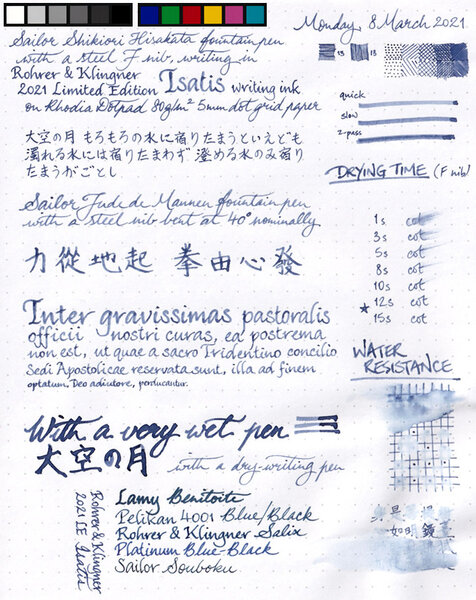 Monday, 8 March 2021
Sailor Shikiori Hisakata fountain pen
with a steel F nib, writing in
Rohrer & Klingner
2021 Limited Edition Isatis writing ink
on Rhodia Dotpad 80g/m² 5mm dot grid paper
大空の月 もろもろの水に宿りたまうといえども
濁れる水には宿りたまわず 澄める水のみ宿り
たまうがごとし
quick
slow
2-pass
DRYING TIME (F nib)
1s cot
3s cot
5s cot
8s cot
10s cot
★ 12s cot
15s cot
Sailor Fude de Mannen fountain pen
with a steel nib bent at 40° nominally
力從地起 拳由心發
Inter gravissimas pastoralis
officii nostri curas, ea postrema
non est, ut quae a sacro Tridentino concilio
Sedi Apostolicae reservata sunt, illa ad finem
optatum, Deo adiutore, perducantur.
WATER
RESISTANCE
With a very wet pen
大空の月 with a dry-writing pen
Rohrer & Klingner
2021 LE Isatis
Lamy Benitoite
Pelikan 4001 Blue/Black
Rohrer & Klingner Salix
Platinum Blue-Black
Sailor Souboku
如明鏡